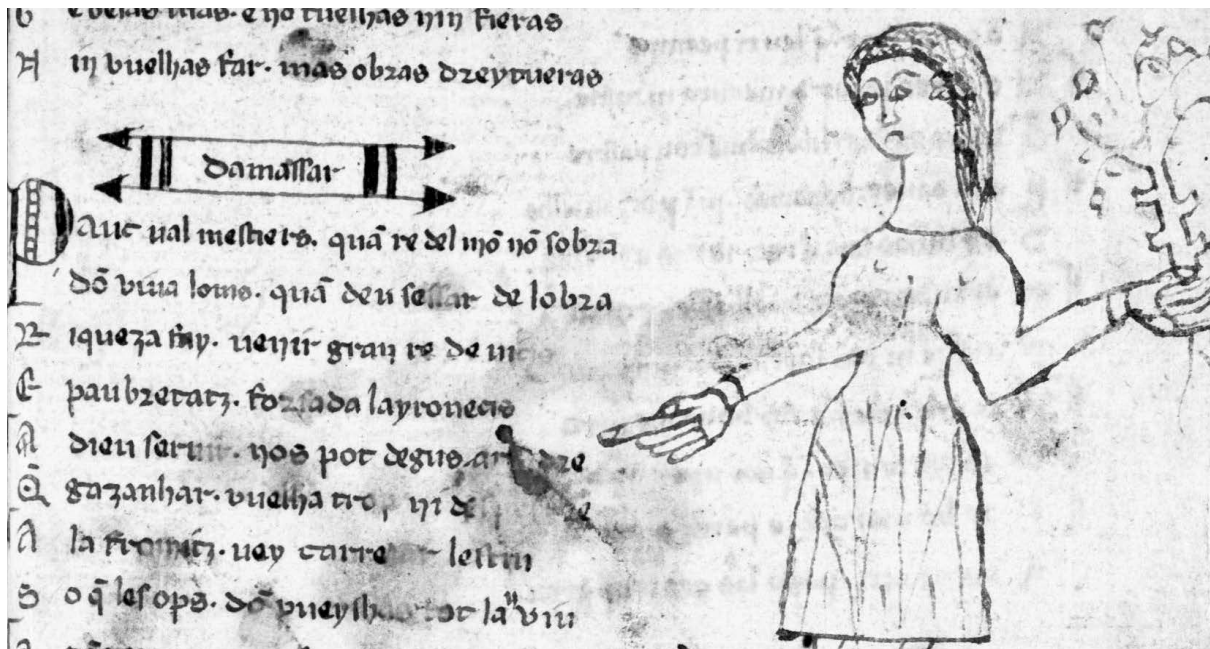 E nō tuelhas nin fieras
N in vuelhas far. mas obras dreytueras
damassar
Aut ual mestiers. quā re del mō nō sobra
dō viua loms. quā deu sessar de lobra
R iqueza fay. uenir gran re de
E paubretatz. forsada layronecis
A dieu seruir. nos pot degus. dre
Q̄ gazanhar. vuelha trop ni
A la fromitz. uey carreiar lestiu
S o q̄ les ops. dō pueyshas tot lan viu